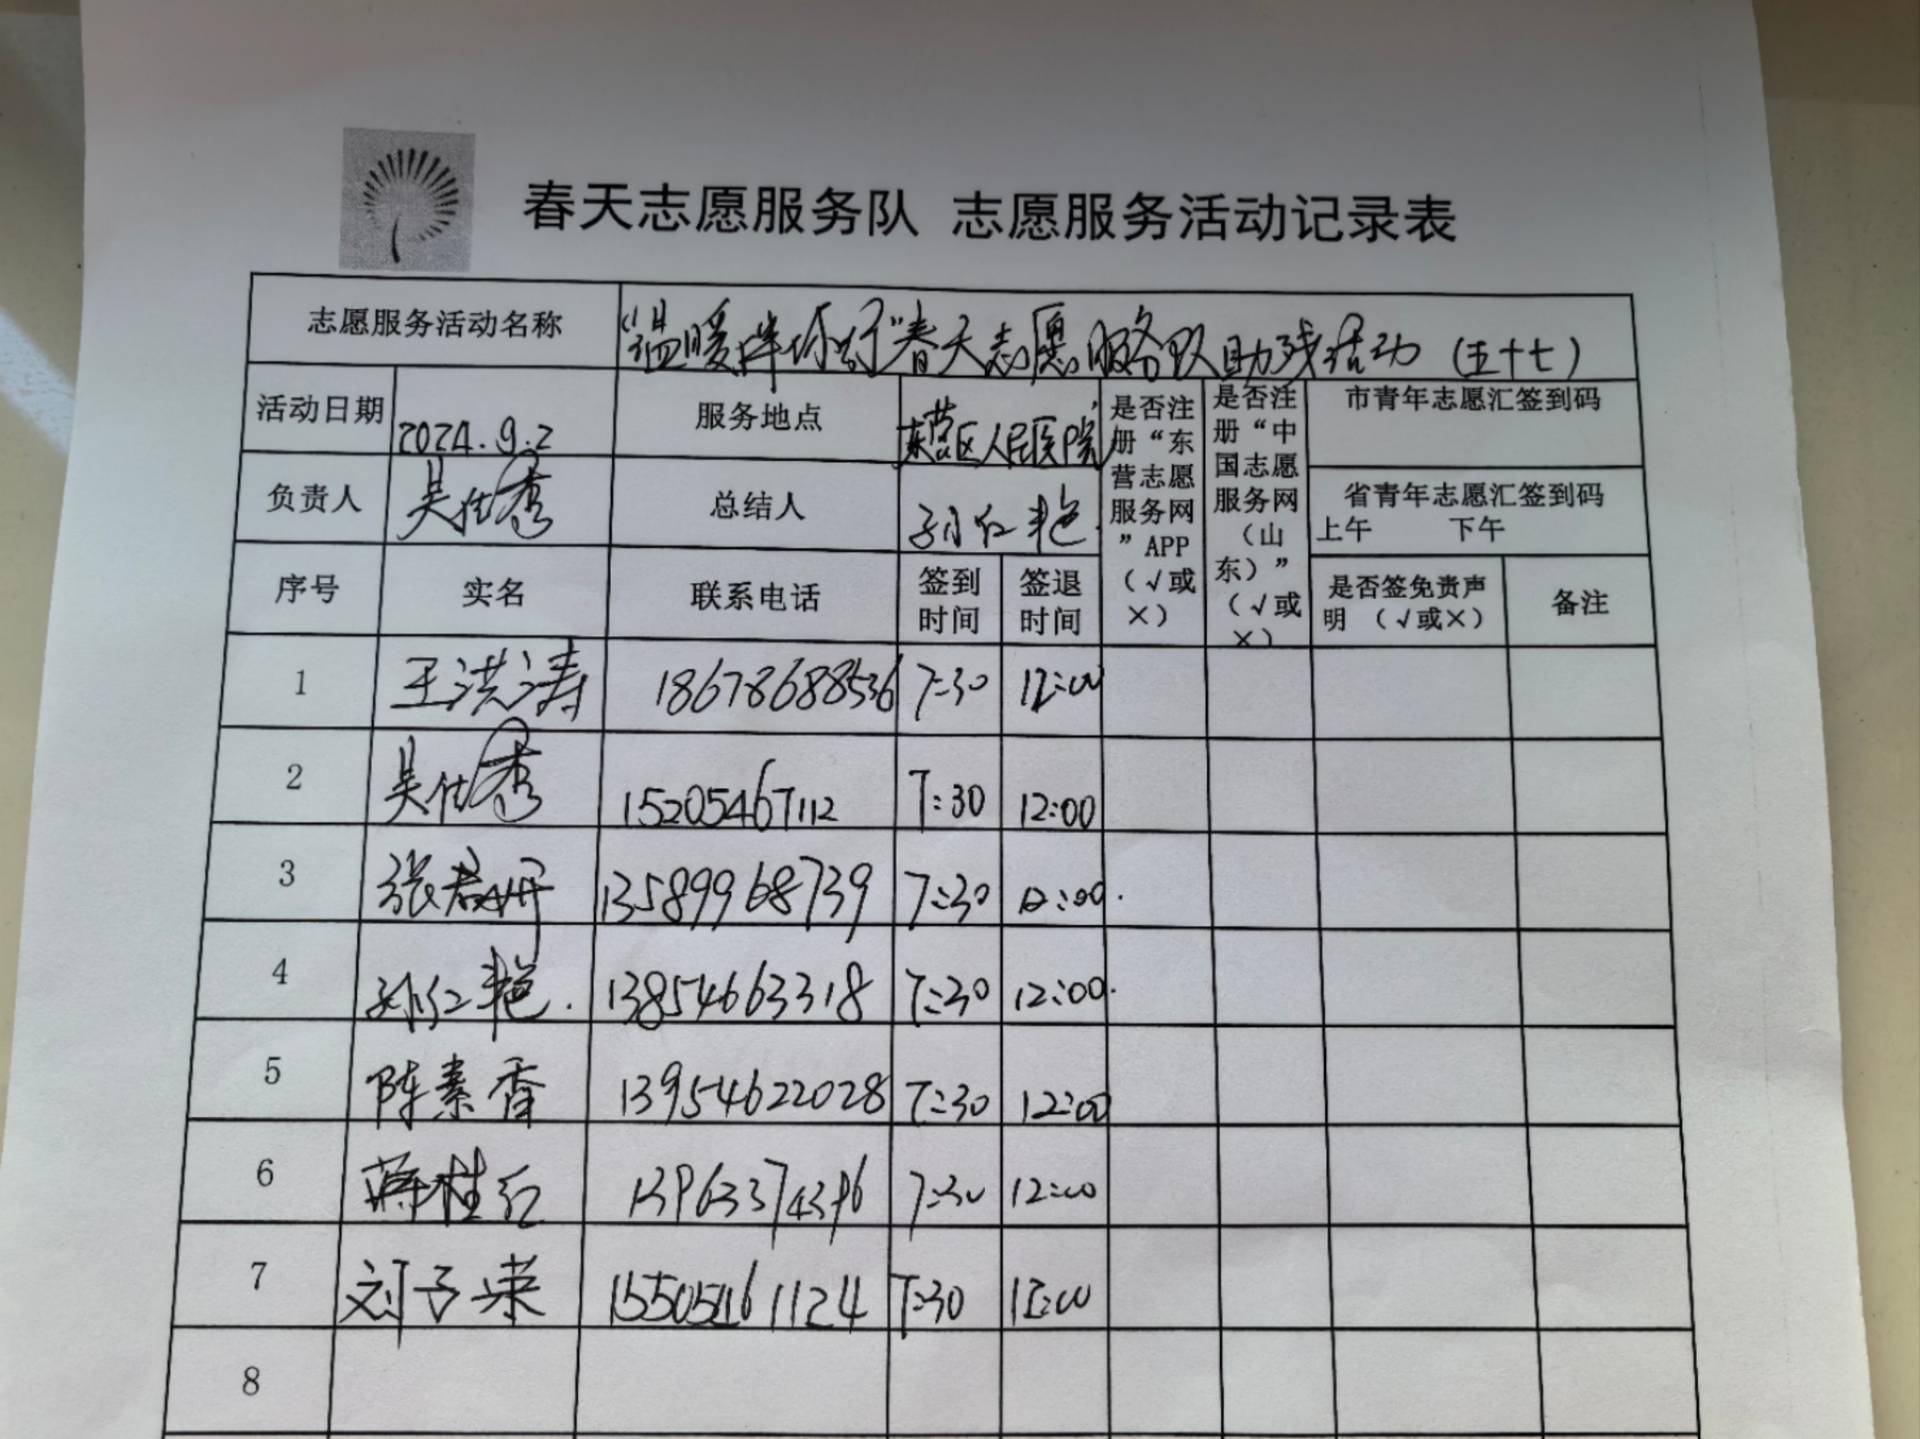 春天志愿服务队 志愿服务活动记录表
志愿服务活动名称 “温暖伴你行”春天志愿服务队助残活动（五十七）
活动日期 2024.9.2 服务地点 东营区人民医院
是否注册“东营志愿服务网”APP（√或×）
是否注册“中国志愿服务网（山东）”（√或×）
市青年志愿汇签到码
负责人 吴仕秀 总结人 孙红艳
省青年志愿汇签到码
上午 下午
序号 实名 联系电话 签到时间 签退时间 是否签免责声明（√或×） 备注
1 王洪涛 18678688536 7:30 12:00
2 吴仕秀 15205467112 7:30 12:00
3 张君妍 13589968739 7:30 12:00
4 孙红艳 13854663318 7:30 12:00
5 陈素香 13954622028 7:30 12:00
6 蒋桂红 13963374396 7:30 12:00
7 刘子荣 15505461124 7:30 12:00
8